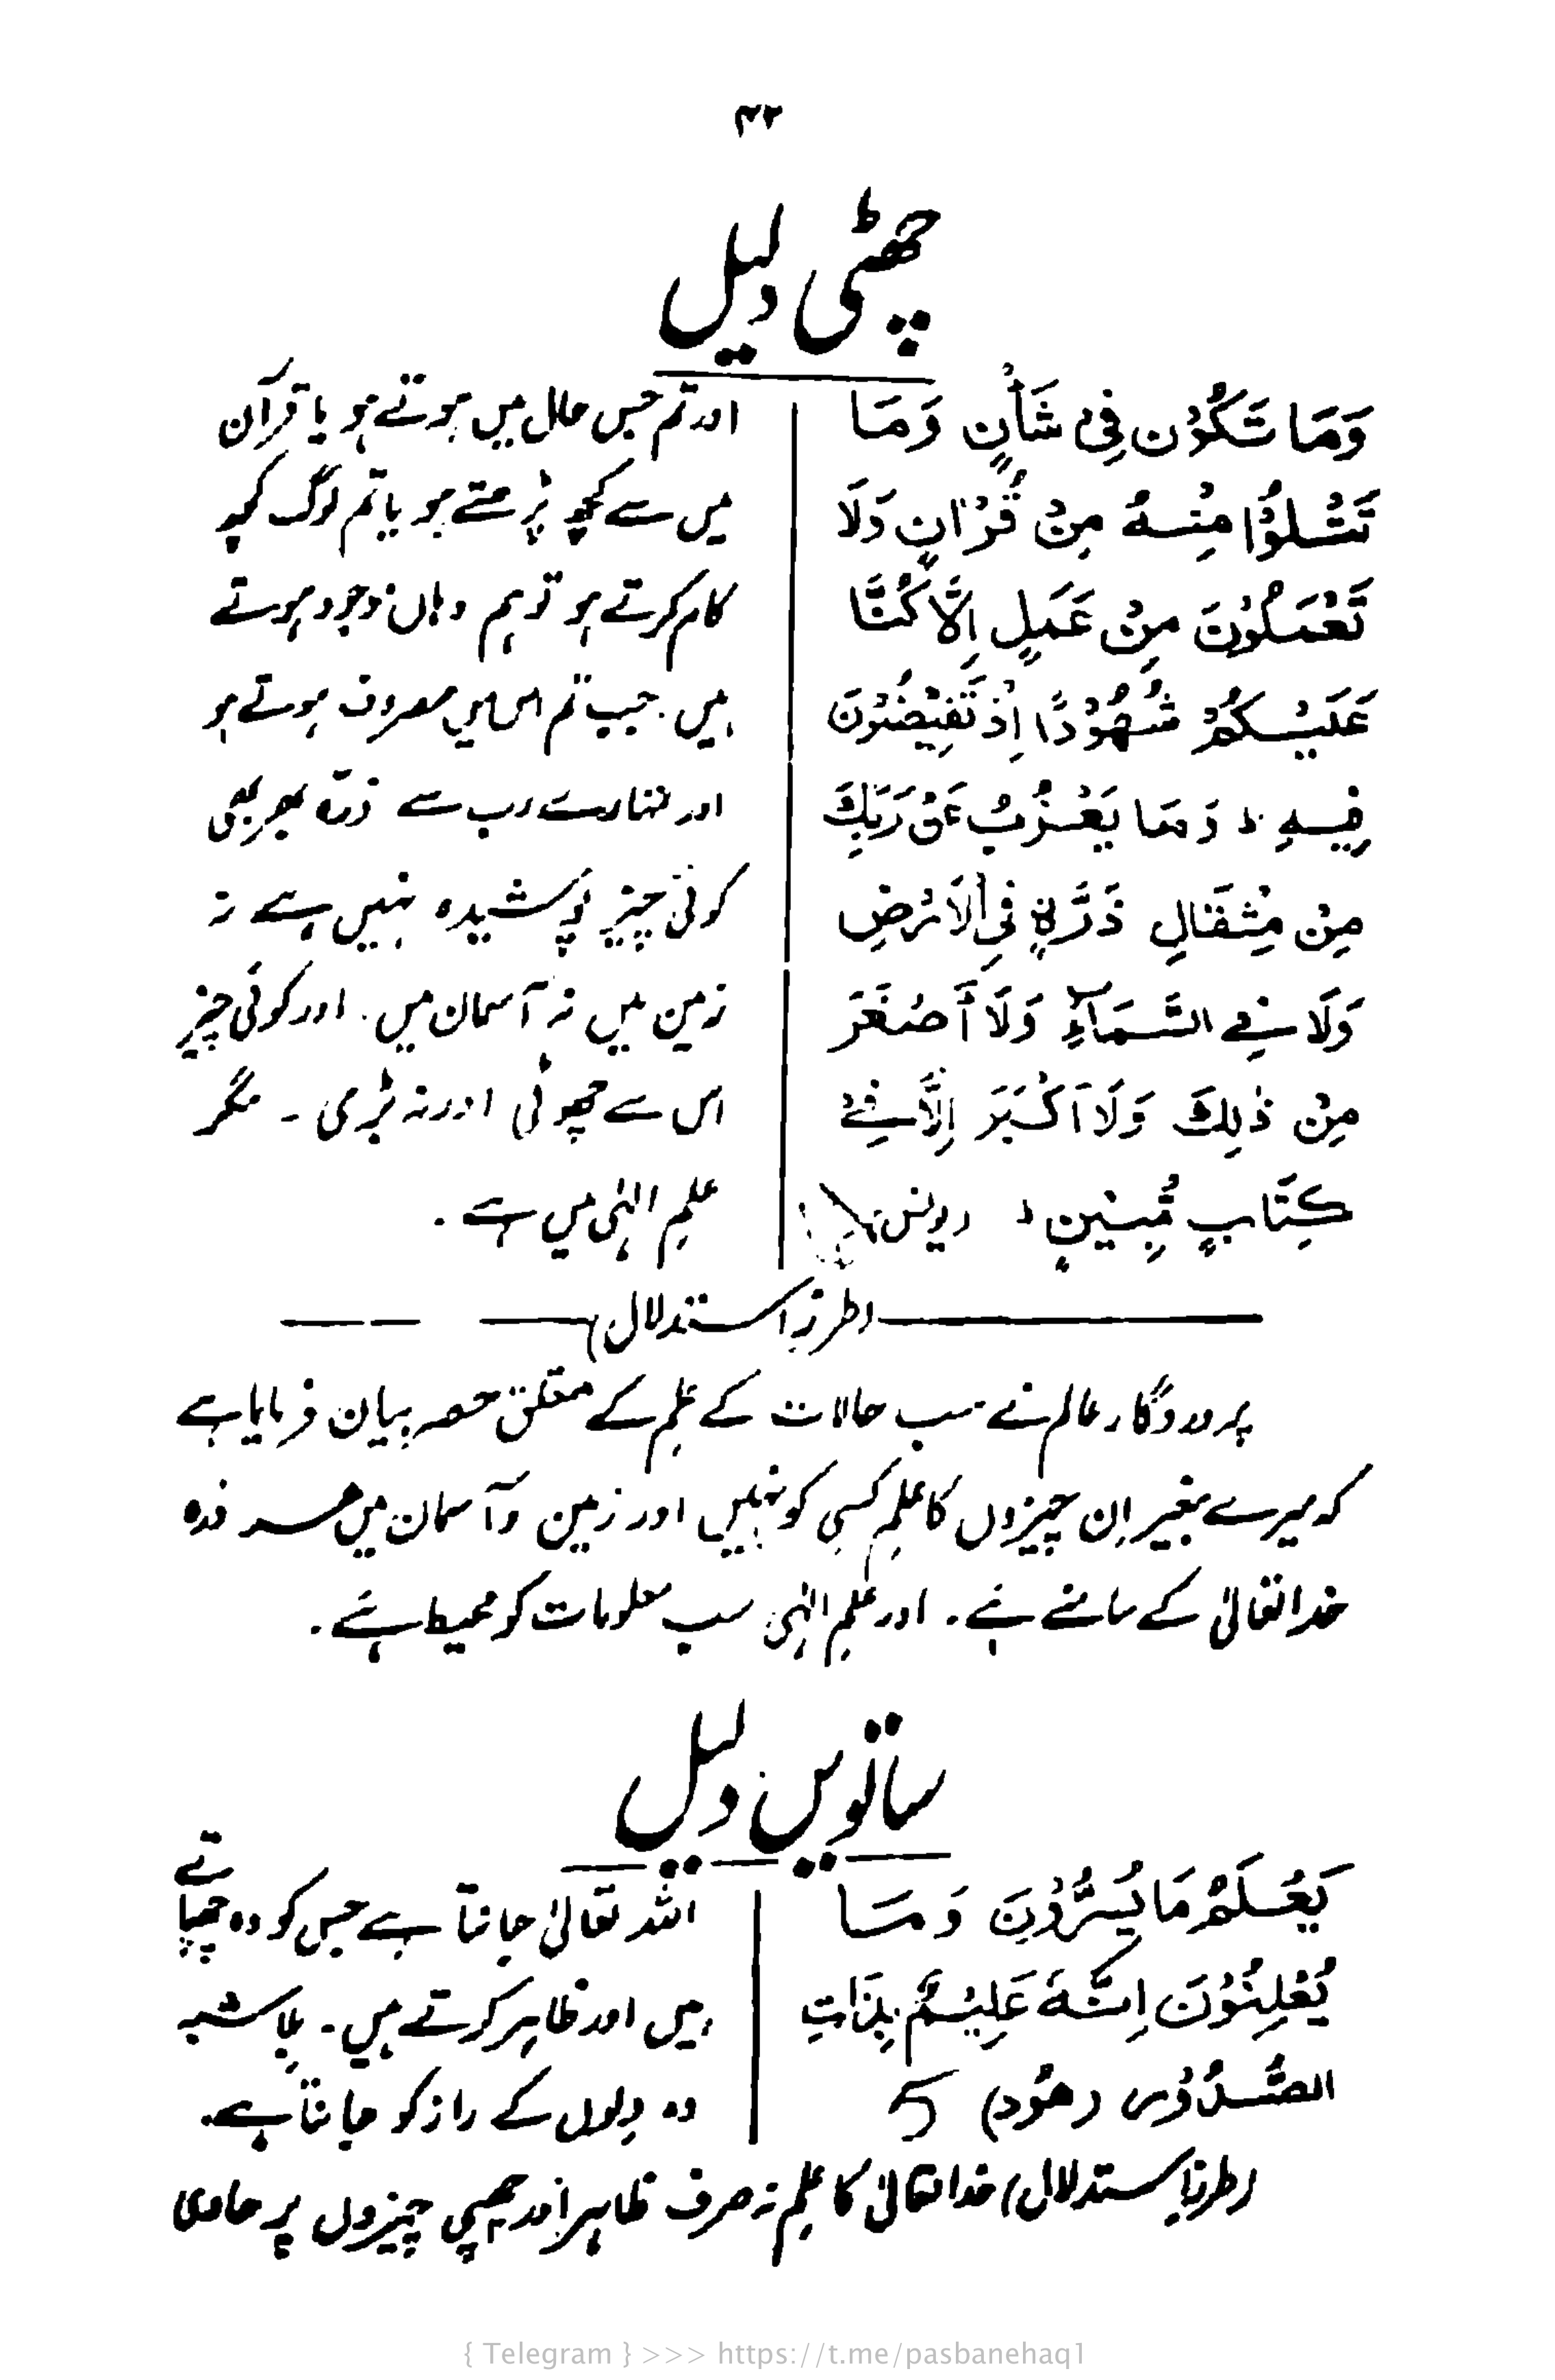 ۳۲
چھٹی دلیل
وَمَا تَكُوْن فِیْ شَأْنٍ وَمَا
تَتْلُوْا مِنْهُ مِنْ قُرْاٰنٍ وَلَا
تَعْمَلُوْنَ مِنْ عَمَلٍ اِلَّا كُنَّا
عَلَيْكُمْ شُهُوْدًا اِذْ تُفِيْضُوْنَ
فِيْهِ ؕ وَمَا يَعْزُبُ عَنْ رَبِّكَ
مِنْ مِثْقَالِ ذَرَّةٍ فِی الْاَرْضِ
وَلَا فِے السَّمَآءِ وَلَا أَصْغَرَ
مِنْ ذٰلِكَ وَلَا اَكْبَرَ اِلَّا فِےْ
كِتَابٍ مُّبِيْنٍ ؕ (یونس)
اور تم جس حال میں ہوتے ہو یا قرآن
میں سے کچھ پڑھتے ہو یا تم لوگ کچھ
کام کرتے ہو تو ہم وہاں موجود ہوتے
ہیں۔ جب تم اس میں مصروف ہوتے ہو
اور تمہارے رب سے ذرّہ بھر بھی
کوئی چیز پوشیدہ نہیں ہے نہ
زمین میں نہ آسمان میں۔ اور کوئی چیز
اس سے چھوٹی اور نہ بڑی ۔ مگر
علمِ الٰہی میں ہے ۔
(طرزِ استدلال)
پروردگار عالم نے سب حالات کے علم کے متعلق حصر بیان فرمایا ہے
کہ میرے بغیر اِن چیزوں کا علم کسی کو نہیں اور زمین و آسمان میں ہر ذرہ
خدا تعالیٰ کے سامنے ہے ۔ اور علمِ الٰہی سب معلومات کو محیط ہے ۔
ساتویں دلیل
يَعْلَمُ مَا يُسِرُّوْنَ وَمَا
يُعْلِنُوْنَ اِنَّهٗ عَلِيْمٌ بِذَاتِ
الصُّدُوْرِ (ھُود) 5
اللہ تعالیٰ جانتا ہے جس کو وہ چھپاتے
ہیں اور ظاہر کرتے ہیں ۔ بلا شبہ
وہ دِلوں کے راز کو جانتا ہے۔
(طرزِ استدلال) خدا تعالیٰ کا علم نہ صرف ظاہر اور چھپی چیزوں پر حاوی
{ Telegram } >>> https://t.me/pasbanehaq1